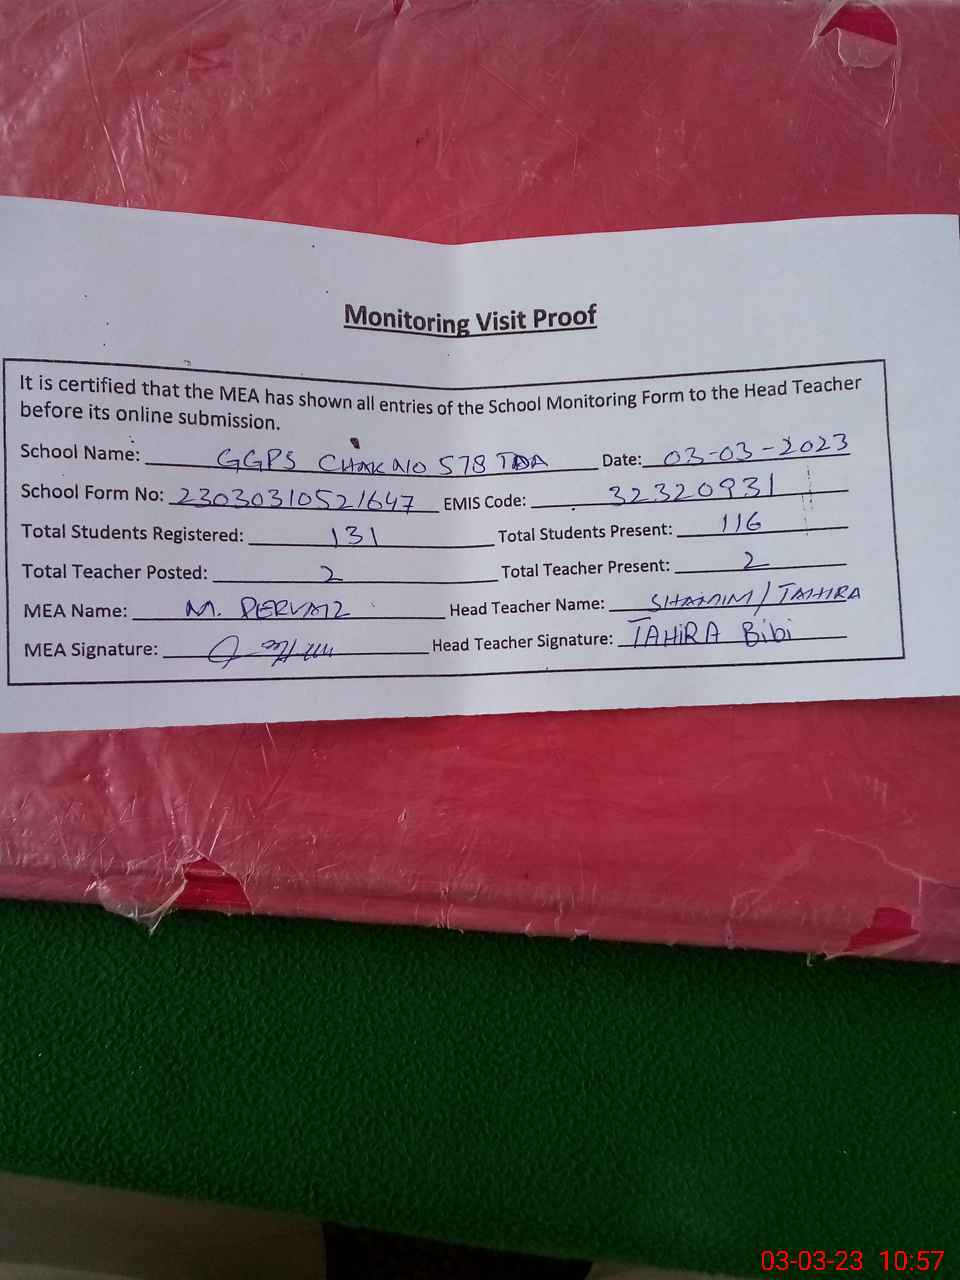 Monitoring Visit Proof
It is certified that the MEA has shown all entries of the School Monitoring Form to the Head Teacher
before its online submission.
School Name: GGPS CHAK NO 578 TDA Date: 03-03-2023
School Form No: 23030310521647 EMIS Code: 32320931
Total Students Registered: 131 Total Students Present: 116
Total Teacher Posted: 2 Total Teacher Present: 2
MEA Name: M. PERVAIZ Head Teacher Name: SHAMIM/TAHIRA
MEA Signature: Head Teacher Signature: TAHIRA Bibi
03-03-23 10:57